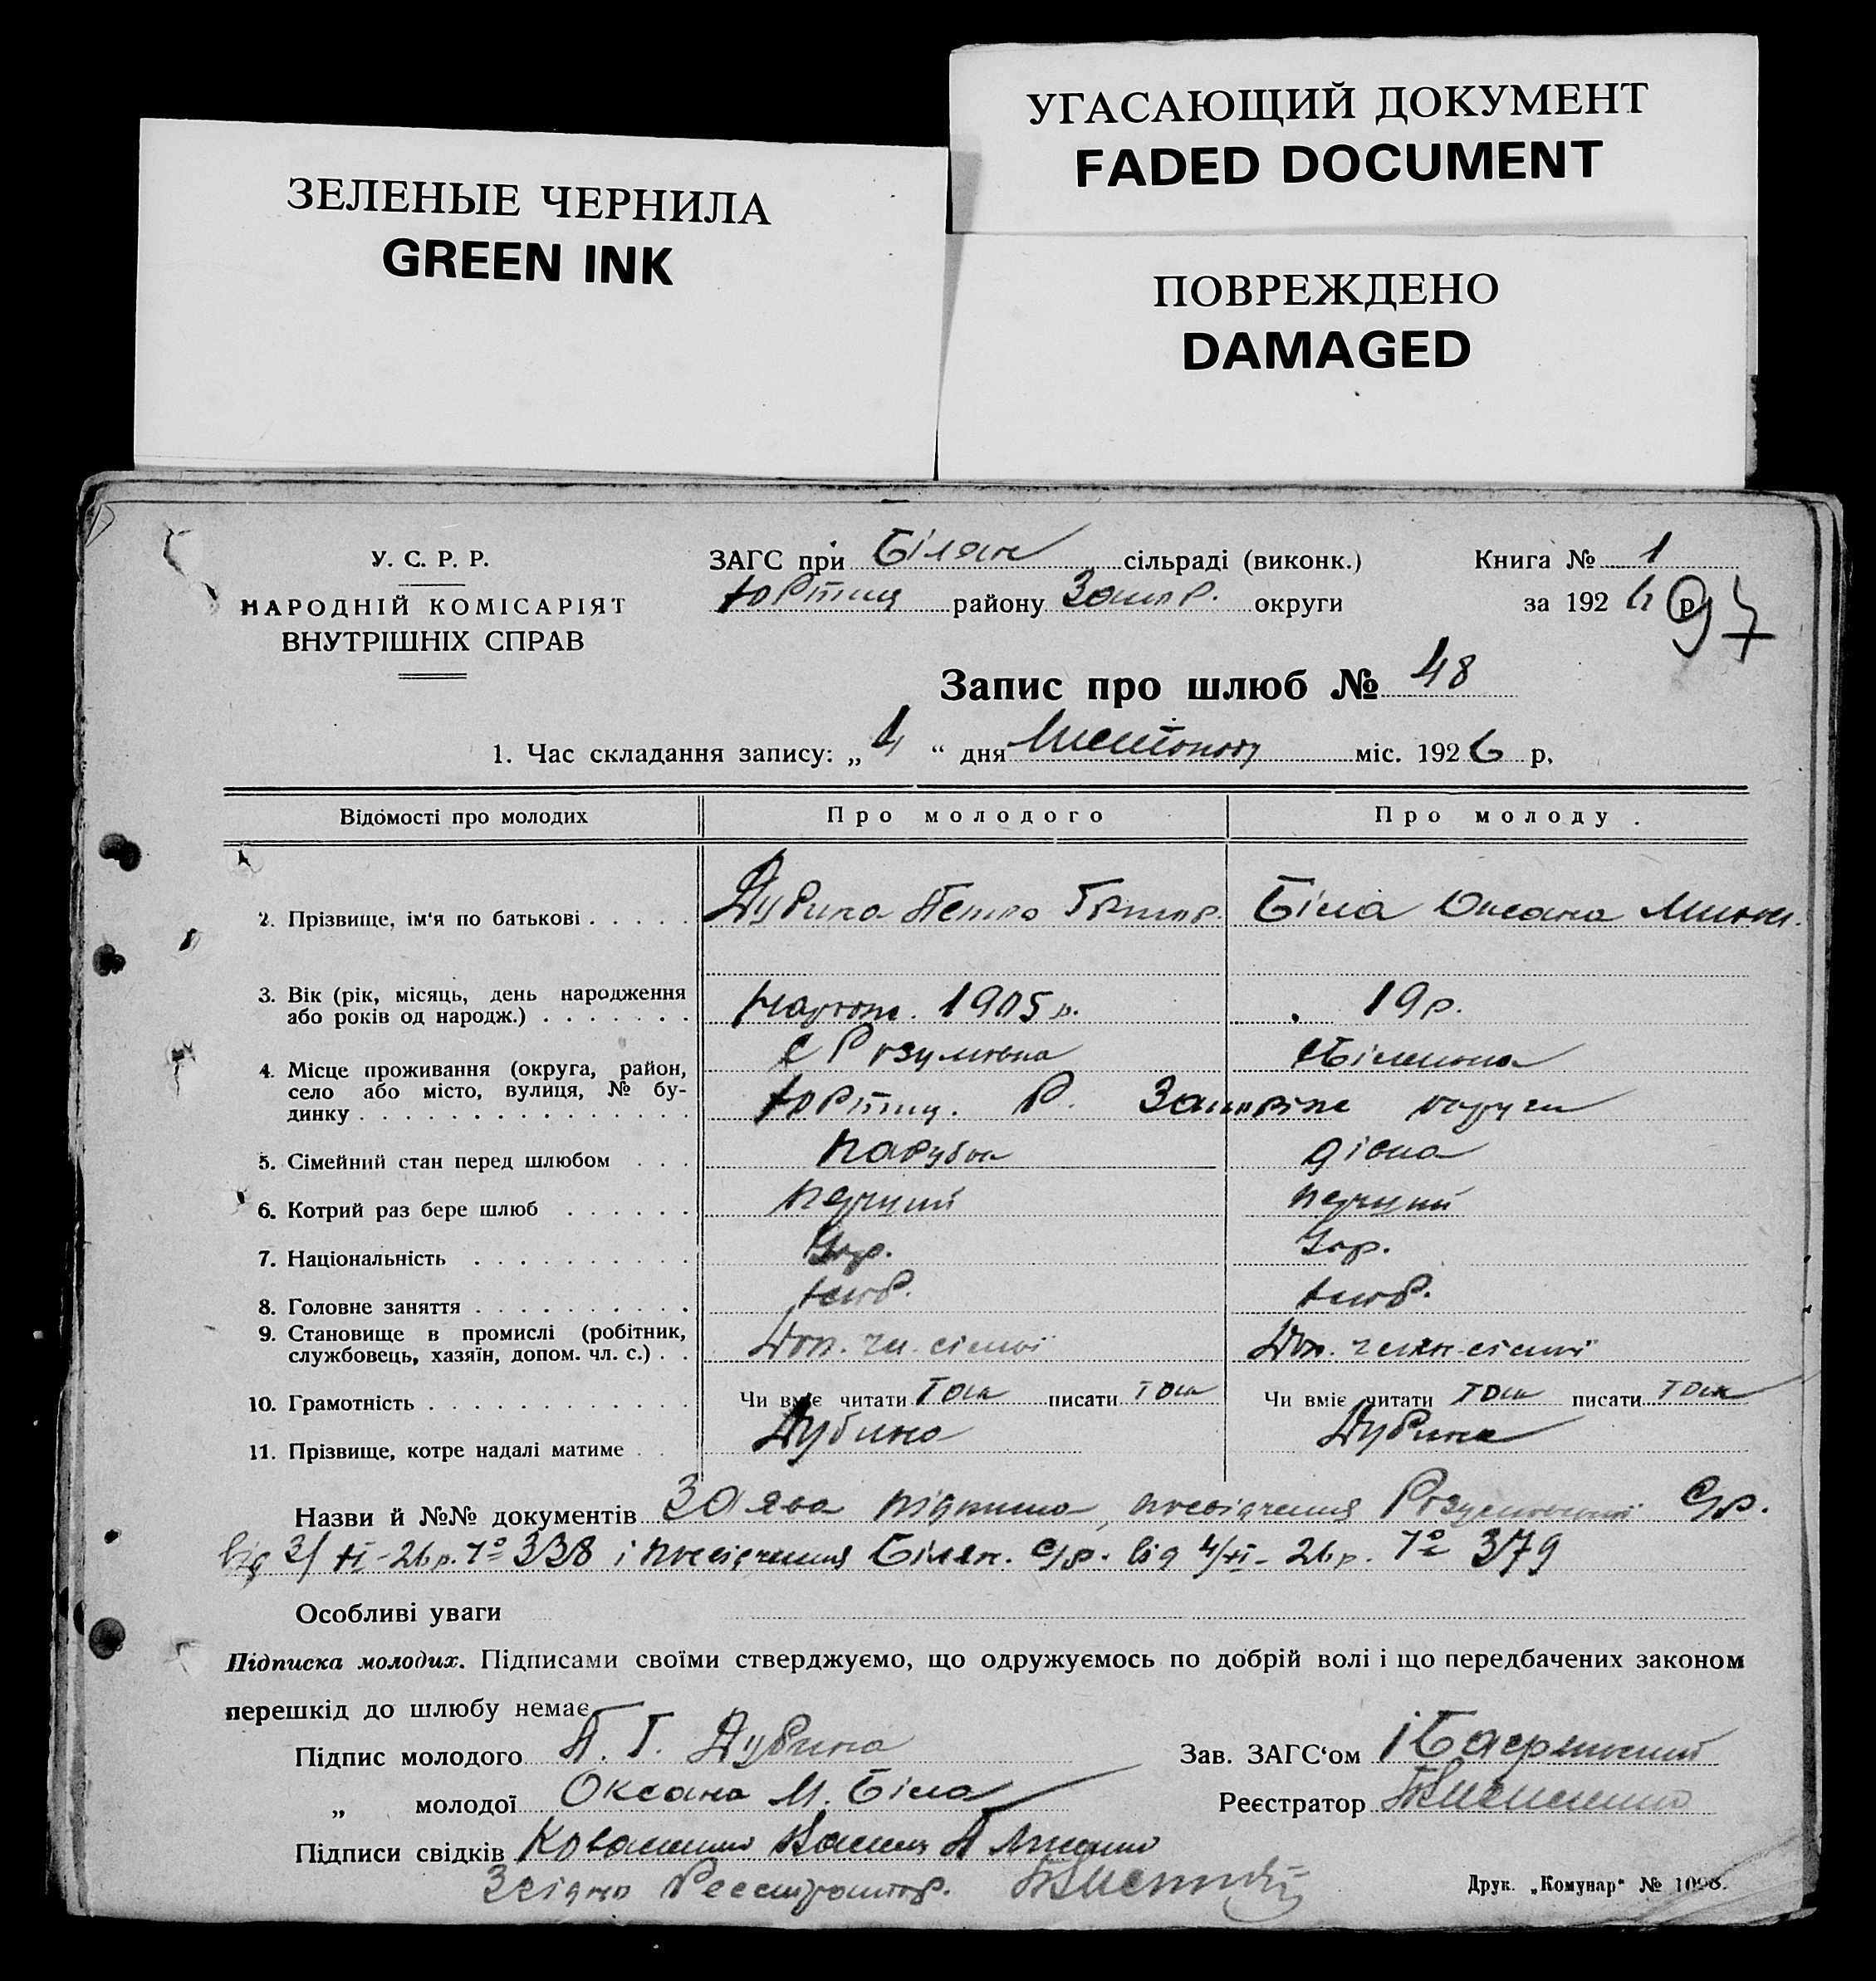 УГАСАЮЩИЙ ДОКУМЕНТ
FADED DOCUMENT
ЗЕЛЕНЫЕ ЧЕРНИЛА
GREEN INK
ПОВРЕЖДЕНО
DAMAGED
У. С. Р. Р.
НАРОДНІЙ КОМІСАРІЯТ
ВНУТРІШНІХ СПРАВ
ЗАГС при Білян сільраді (виконк.)
району Запор. округи
Книга № 1
за 1926 р
97
Запис про шлюб № 48
1. Час складання запису: „ 4 “ дня Листопаду міс. 1926 р.
Відомості про молодих Про молодого Про молоду
2. Прізвище, ім‘я по батькові Дубина Петро Григор. Біла Оксана
3. Вік (рік, місяць, день народження
або років од народж.) 1905 р. 19 р.
4. Місце проживання (округа, район,
село або місто, вулиця, № бу-
динку Р. округи
5. Сімейний стан перед шлюбом парубок дівка
6. Котрий раз бере шлюб перший перший
7. Національність Укр. Укр.
8. Головне заняття хліб. хліб.
9. Становище в промислі (робітник,
службовець, хазяїн, допом. чл. с.) Доп. чл. сімьї Доп. член. сімьї
10. Грамотність Чи вміє читати так писати так Чи вміє читати так писати так
11. Прізвище, котре надалі матиме Дубина Дубина
Назви й №№ документів Заява підписка, посвідчення Розумовської С/р.
від 3/XI-26 р. № 338 і посвідчення Білян. с/р. від 4/XI-26 р. № 379
Особливі уваги
Підписка молодих. Підписами своїми стверджуємо, що одружуємось по добрій волі і що передбачених законом
перешкід до шлюбу немає
Підпис молодого П. Г. Дубина
„ молодої Оксана М. Біла
Підписи свідків
Зав. ЗАГС‘ом
Реєстратор
Згідно Реєстратор.
Друк. „Комунар“ № 1098.